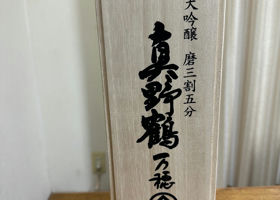 大吟醸 磨三割五分
真野鶴
万穂